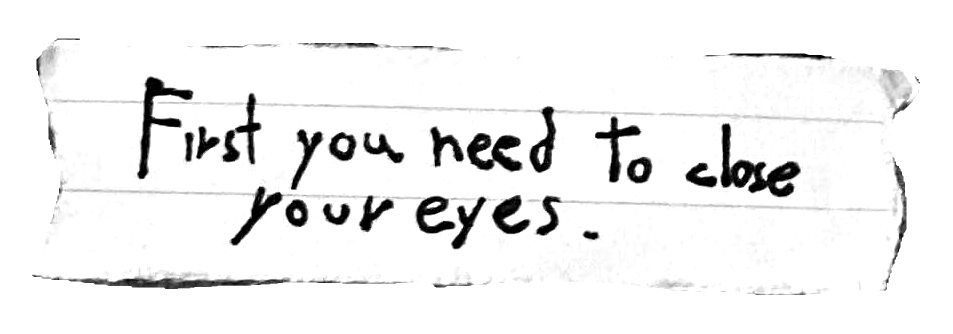 First you need to close
your eyes.